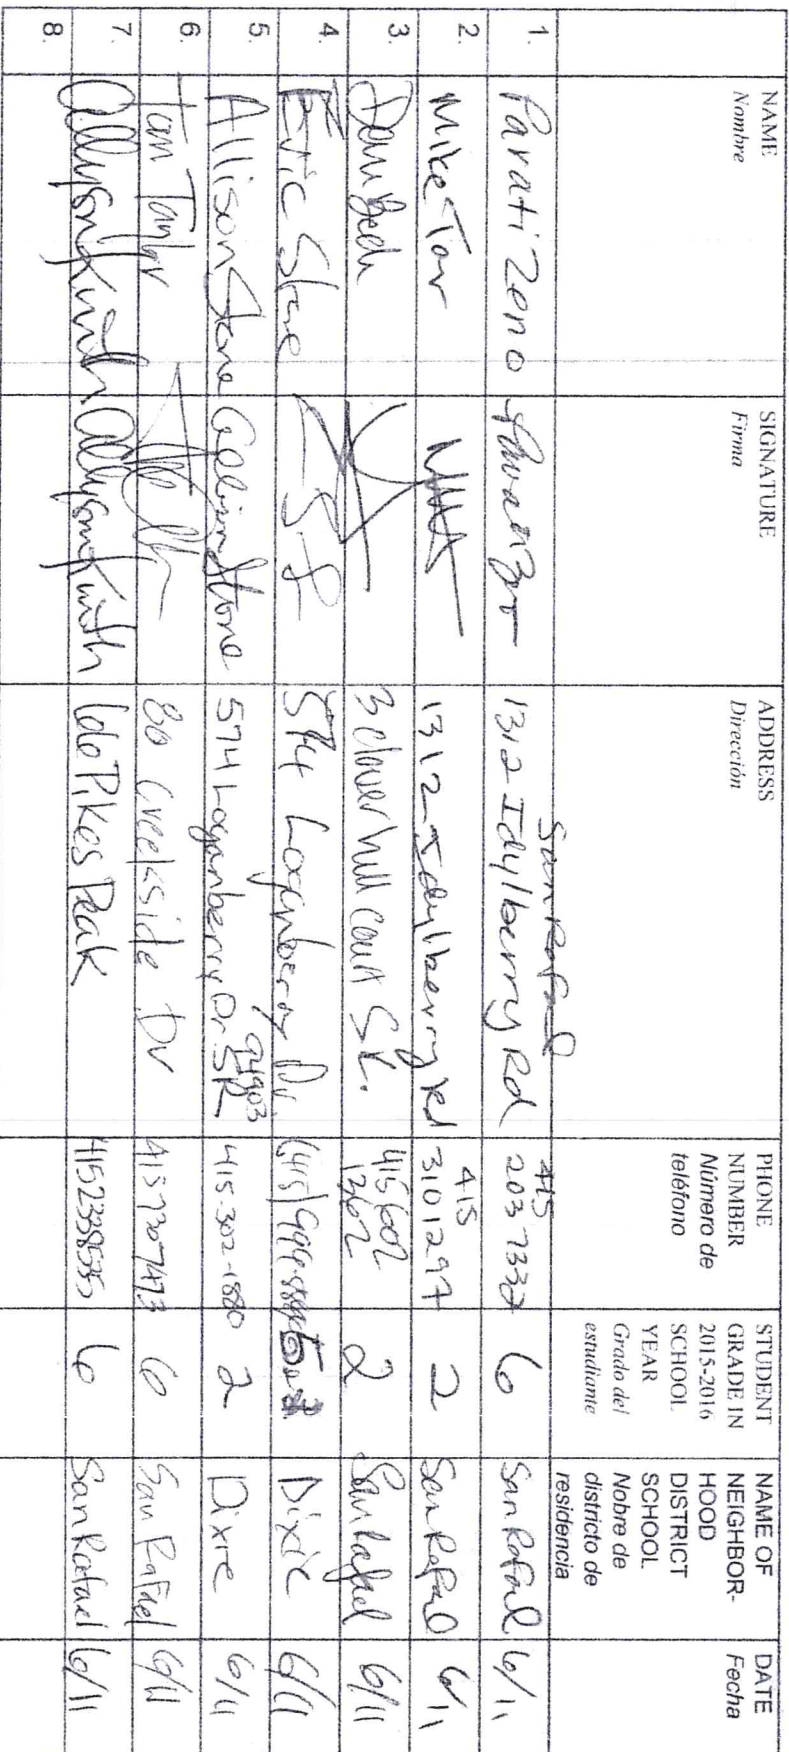 NAME
Nombre
SIGNATURE
Firma
ADDRESS
Dirección
PHONE
NUMBER
Número de
teléfono
STUDENT
GRADE IN
2015-2016
SCHOOL
YEAR
Grado del
estudiante
NAME OF
NEIGHBOR-
HOOD
DISTRICT
SCHOOL
Nobre de
districto de
residencia
DATE
Fecha
1. Parati Zeno 1312 Idylberry Rd San Rafael 415 203 7332 6 San Rafael 6/11
2. Mike Tar 1312 Idylberry Rd 415 310 1297 2 San Rafael 6/11
3. 3 clover hill court S.R. 415 602 1362 2 San Rafael 6/11
4. Eric Stone 574 Loganberry Dr. (415) 5 Dixie 6/11
5. Allison Stone Allison Stone 574 Loganberry Dr. SR 94903 415-302-1880 2 Dixie 6/11
6. Tom Taylor 80 Creekside Dr 415 730 7473 6 San Rafael 6/11
7. Allyson Allyson Pikes Peak 6 San Rafael 6/11
8.